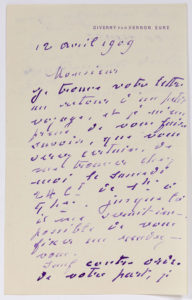 GIVERNY PAR VERNON, EURE
12 avril 1909
Monsieur
Je trouve votre lettre
au retour d'un petit
voyage, et je m'em
presse de vous faire
savoir, que vous
serez certain de
me trouver chez
moi le samedi
24 ct de 1h à
jusque là
il me serait im
possible de vous
fixer un rendez-
vous.
Sauf contre ordre
de votre part, je